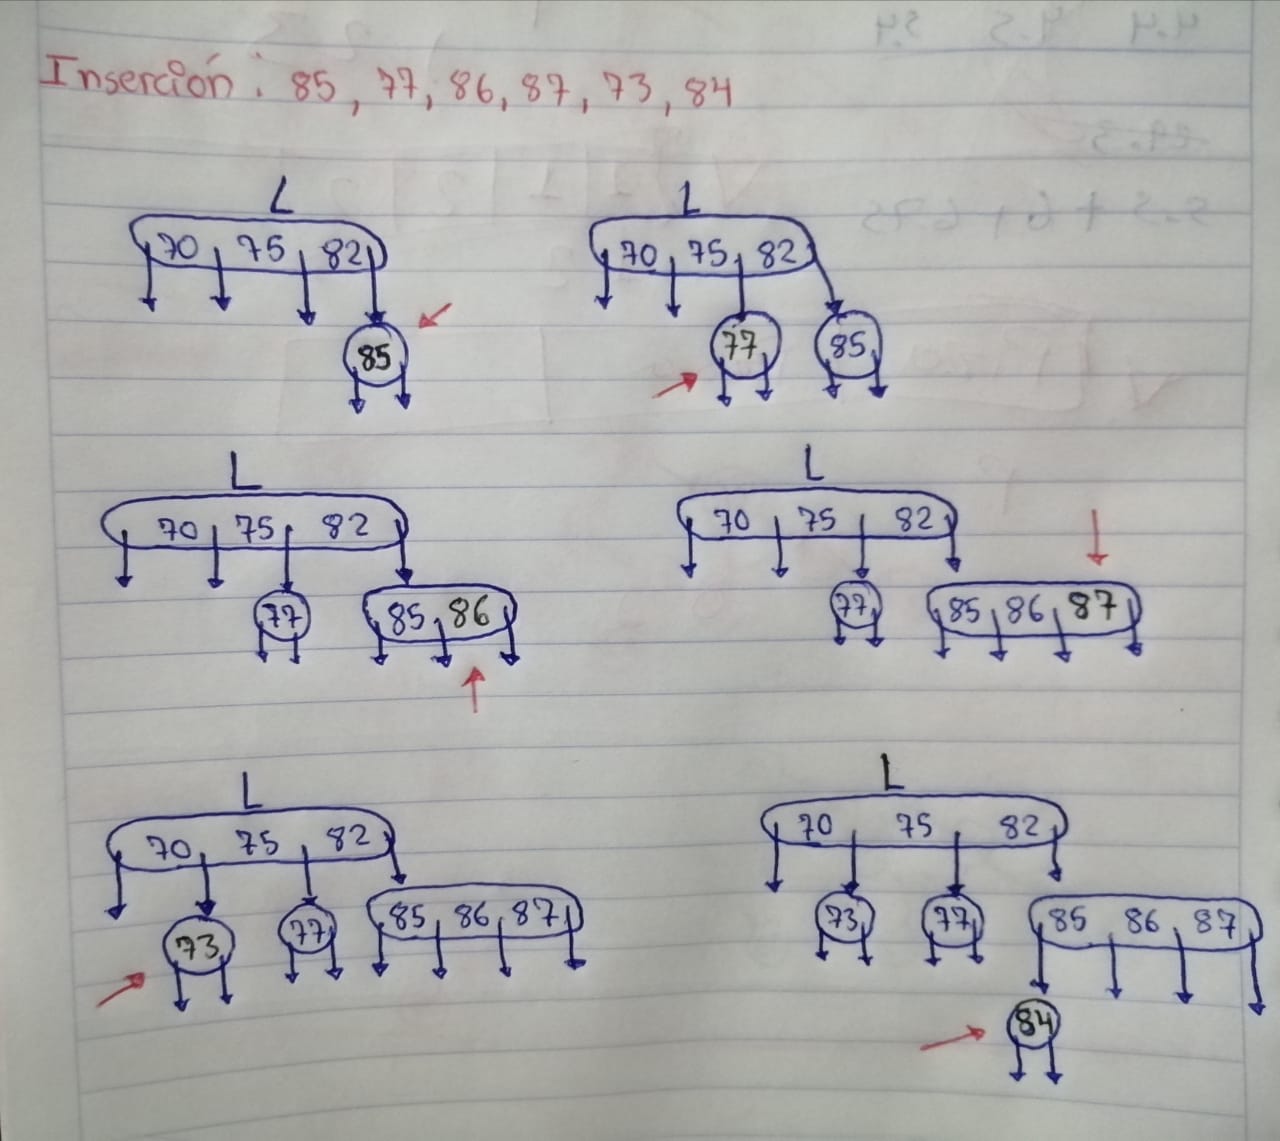 Inserción: 85, 77, 86, 87, 73, 84
L
70 75 82
85
L
70 75 82
77 85
L
70 75 82
77 85 86
L
70 75 82
77 85 86 87
L
70 75 82
73 77 85 86 87
L
70 75 82
73 77 85 86 87
84